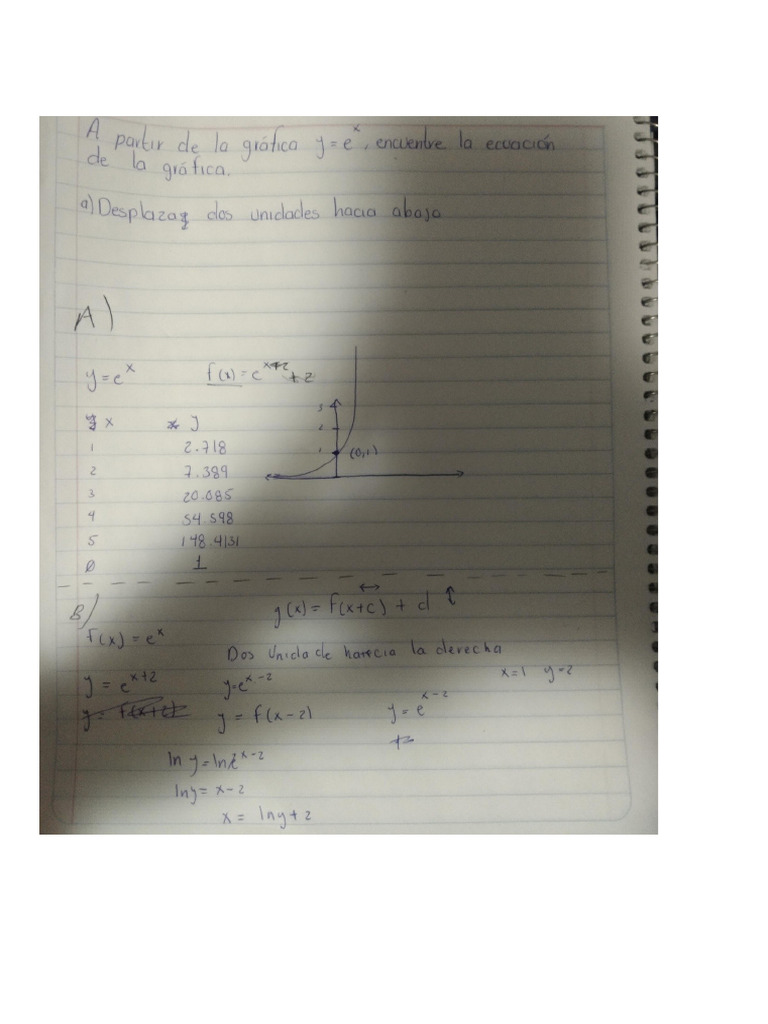 A partir de la gráfica y = e^x, encuentre la ecuación
de la gráfica.
a) Desplaza dos unidades hacia abajo
A)
y = e^x f(x) = e^x+2 + 2
x y
1 2.718
2 7.389
3 20.085
4 54.598
5 148.4131
0 1
3
2
1 (0,1)
B)
g(x) = f(x+c) + d
f(x) = e^x
Dos Unidade hacia la derecha
y = e^x+2 y=e^x-2 x=1 y=2
y = f(x+2) y = f(x-2) y = e^x-2
ln y = ln e^x-2
ln y = x-2
x = ln y + 2